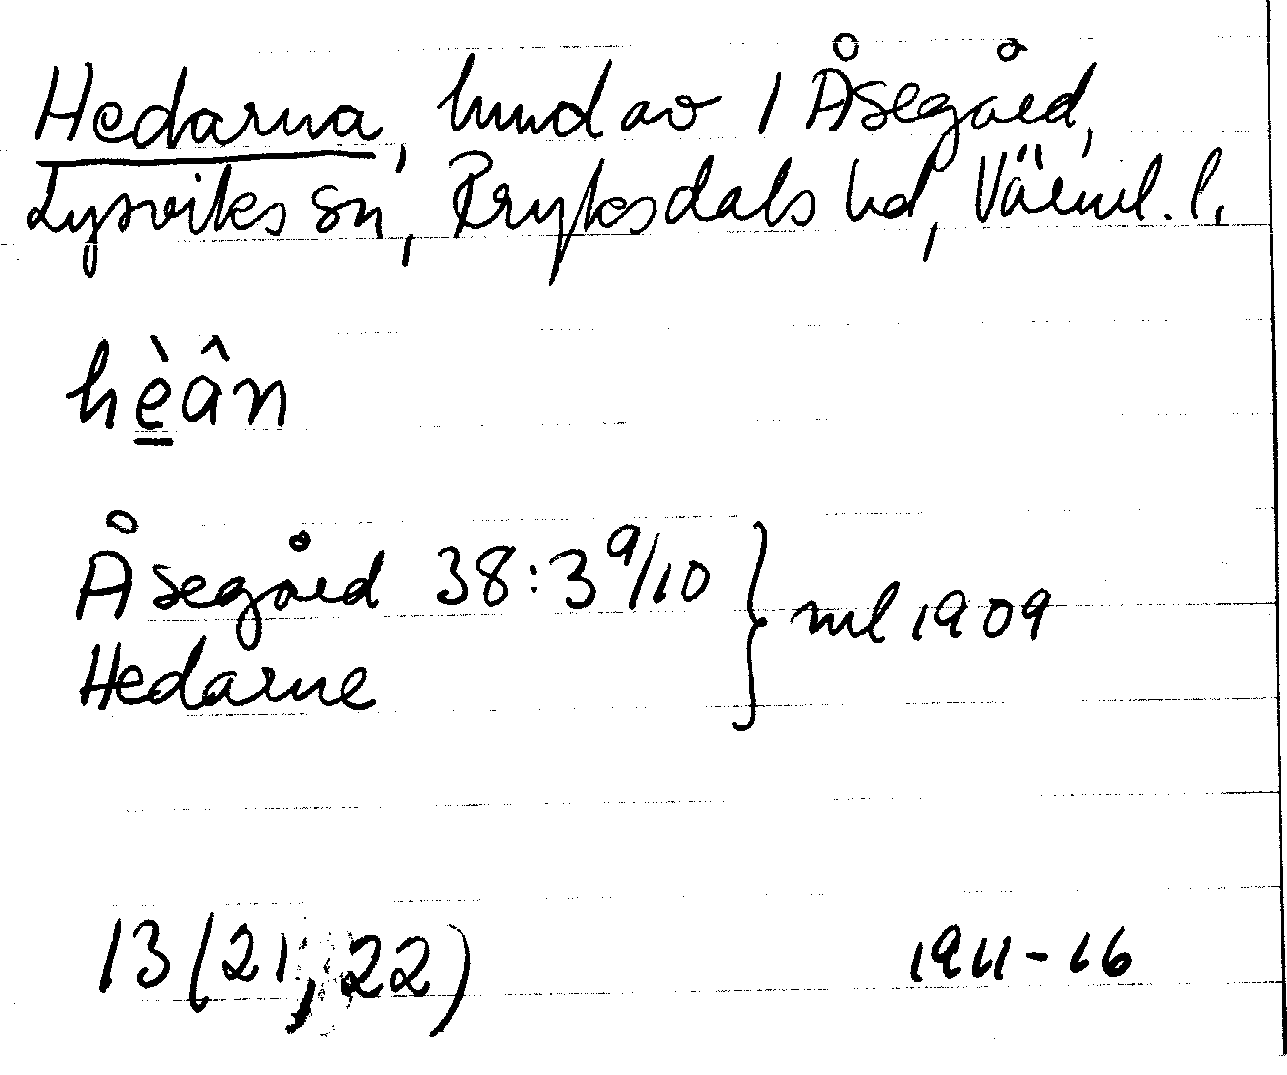 Hedarna, hmd av 1 Åsegård,
Lysviks sn, Fryksdals hd, Värml. l.
hèân
Åsegård 38:3 9/10 } ml 1909
Hedarne
13 (21, 22) 1911-16